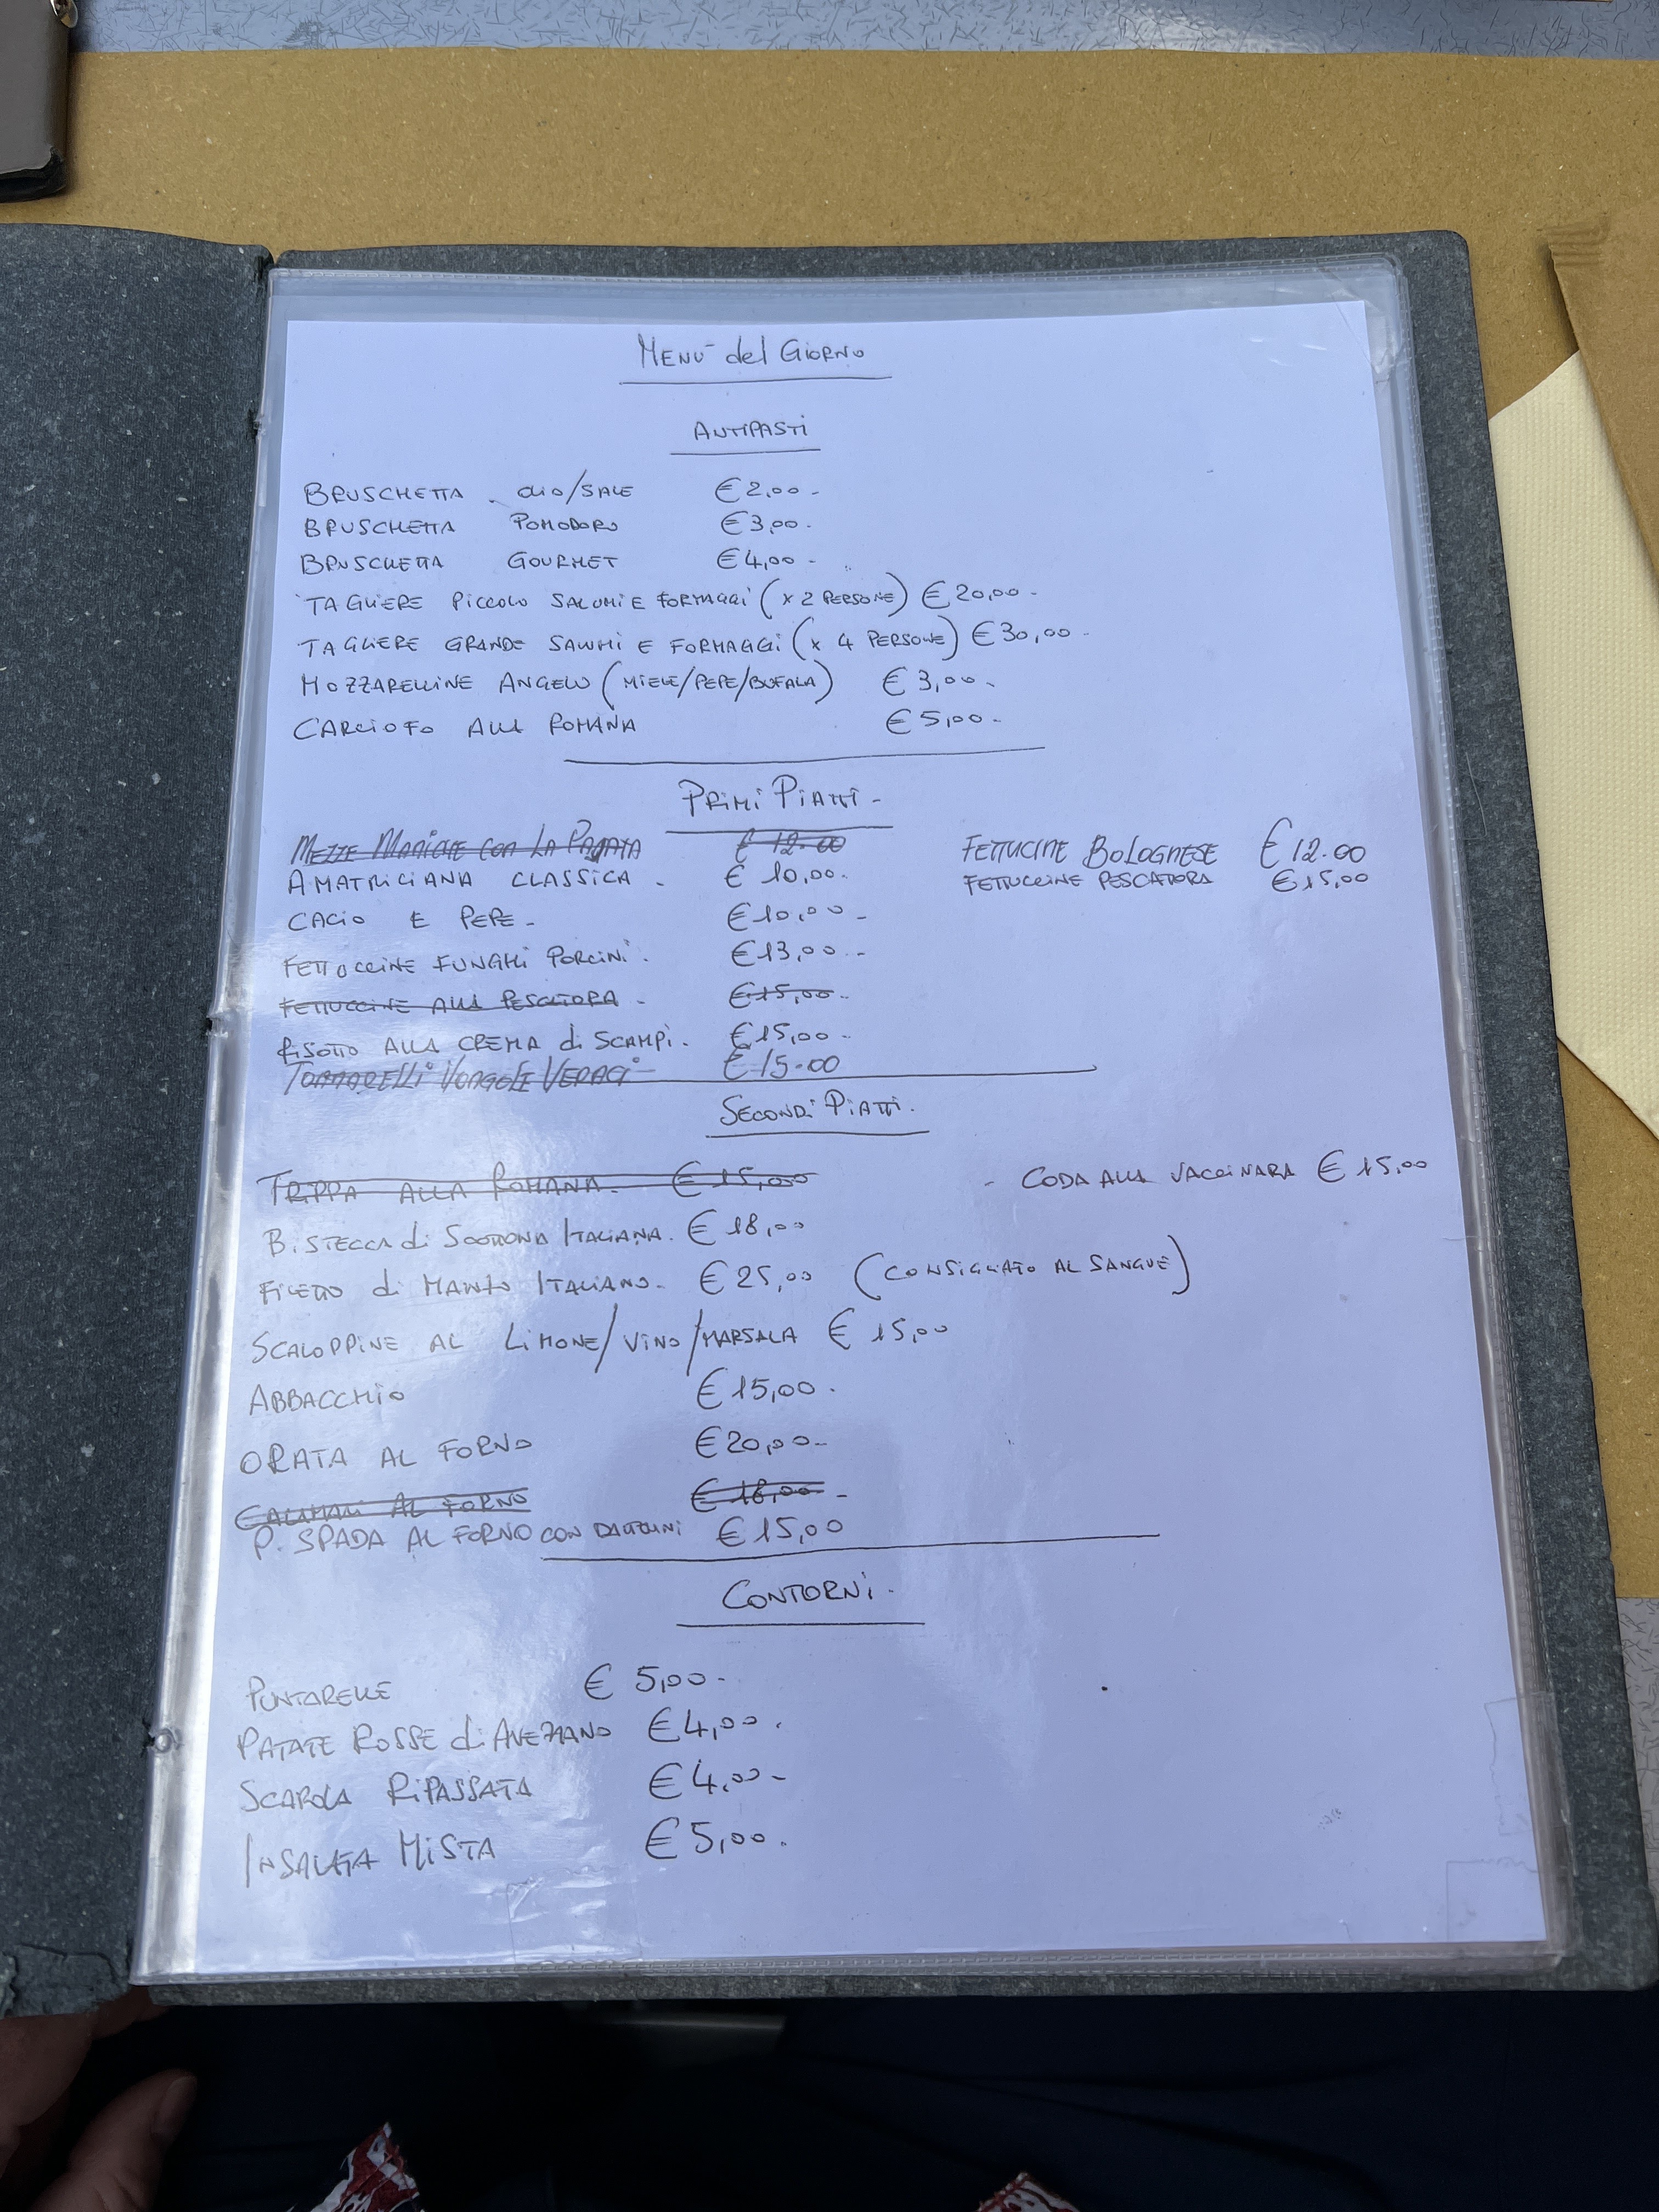 MENU' del GIORNO
ANTIPASTI
BRUSCHETTA . OLIO/SALE €2,00-
BRUSCHETTA POMODORO €3,00.
BRUSCHETTA GOURMET €4,00-
TAGLIERE PICCOLO SALUMI E FORMAGGI (x 2 PERSONE) €20,00-
TAGLIERE GRANDE SALUMI E FORMAGGI (x 4 PERSONE) €30,00-
MOZZARELLINE ANGELO (MIELE/PEPE/BUFALA) €3,00-
CARCIOFO ALLA ROMANA €5,00-
PRIMI PIATTI-
MEZZE MANICHE CON LA PAJATA € 12.00 FETTUCINE BOLOGNESE €12.00
AMATRICIANA CLASSICA . € 10,00. FETTUCCINE PESCATORA €15,00
CACIO E PEPE- €10,00-
FETTUCCINE FUNGHI PORCINI. €13,00-
FETTUCCINE ALLA PESCATORA- €15,00-
RISOTTO ALLA CREMA di SCAMPI. €15,00-
TONNARELLI VONGOLE VERACI €15.00
SECONDI PIATTI.
TRIPPA ALLA ROMANA. €15,00 - CODA ALLA VACCINARA €15,00
BISTECCA di SCOTTONA ITALIANA. €18,00
FILETTO di MANZO ITALIANO- €25,00 (CONSIGLIATO AL SANGUE)
SCALOPPINE AL LIMONE/VINO/MARSALA €15,00
ABBACCHIO €15,00.
ORATA AL FORNO €20,00-
CALAMARI AL FORNO €18,00-
P. SPADA AL FORNO CON DATTERINI €15,00
CONTORNI.
PUNTARELLE € 5,00-
PATATE ROSSE di AVEZZANO €4,00.
SCAROLA RIPASSATA €4,00-
INSALATA MISTA €5,00.